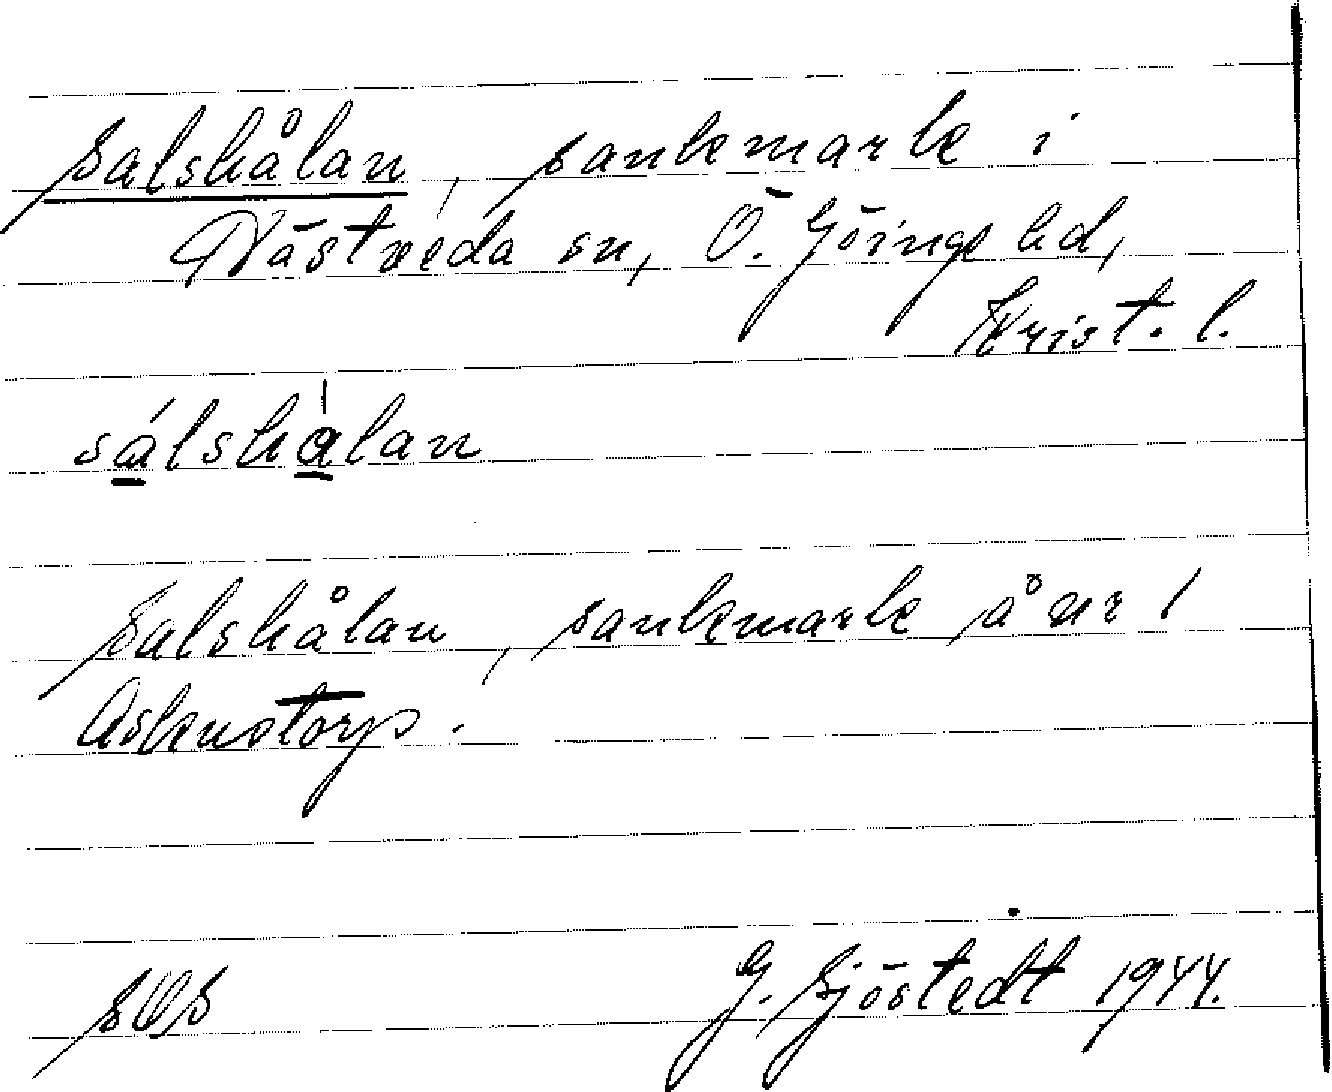 Salshålan, sankmark i
Västveda sn, Ö. Göinge hd,
Krist. l.
sálshalan
Salshålan, sankmark å nr 1
Askustorp.
SOS
G. Sjöstedt 1944.